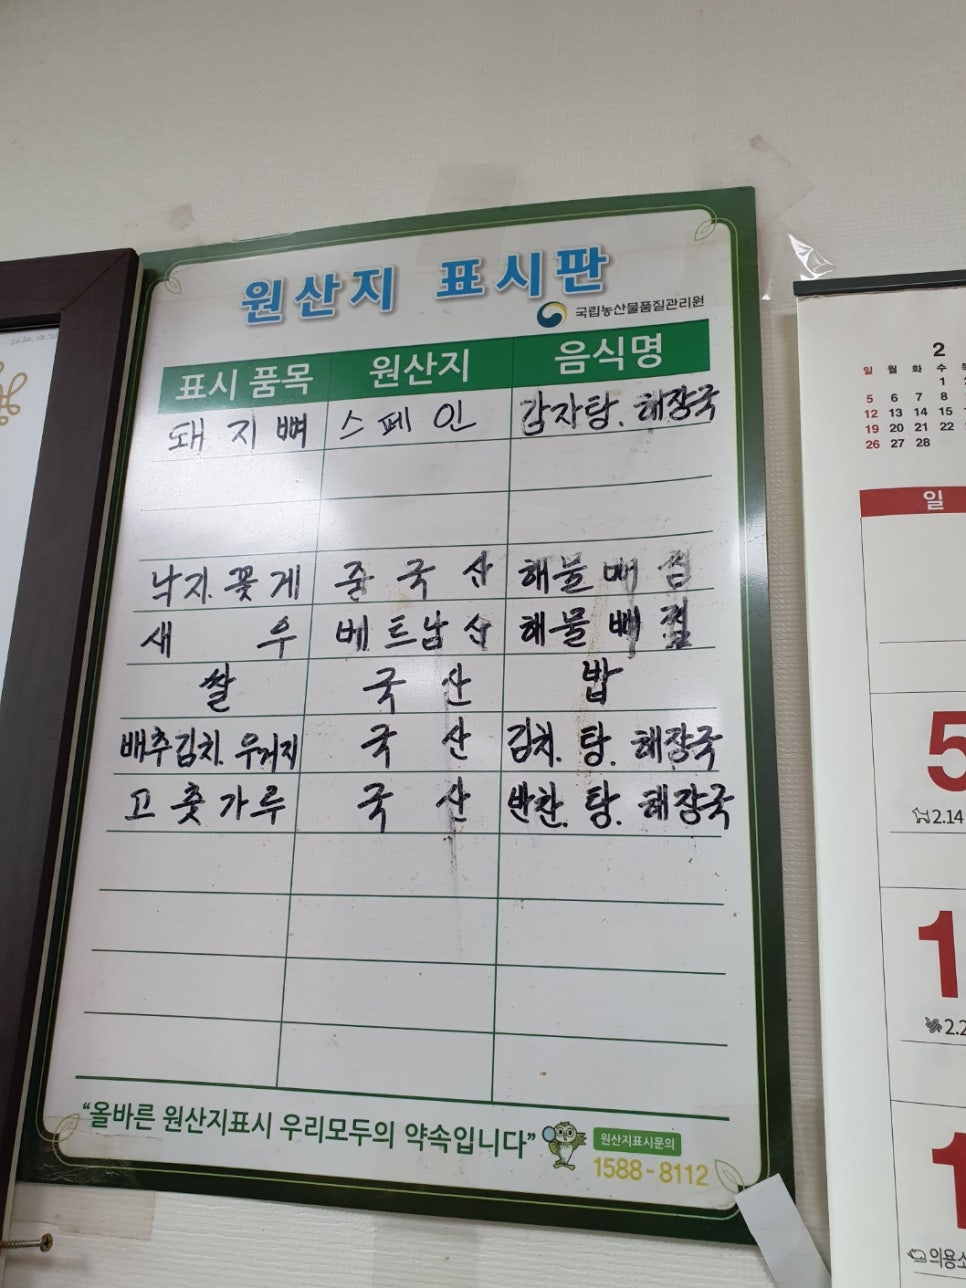 원산지 표시판
국립농산물품질관리원
표시 품목 원산지 음식명
돼지뼈 스페인 감자탕. 해장국
낙지. 꽃게 중국산 해물뼈찜
새우 베트남산 해물뼈찜
쌀 국산 밥
배추김치. 우거지 국산 김치. 탕. 해장국
고춧가루 국산 반찬. 탕. 해장국
“올바른 원산지표시 우리모두의 약속입니다”
원산지표시문의
1588-8112
2
일 월 화 수
1
5 6 7 8
12 13 14 15
19 20 21 22
26 27 28
일
5
2.14
1
2.2
1
의용소